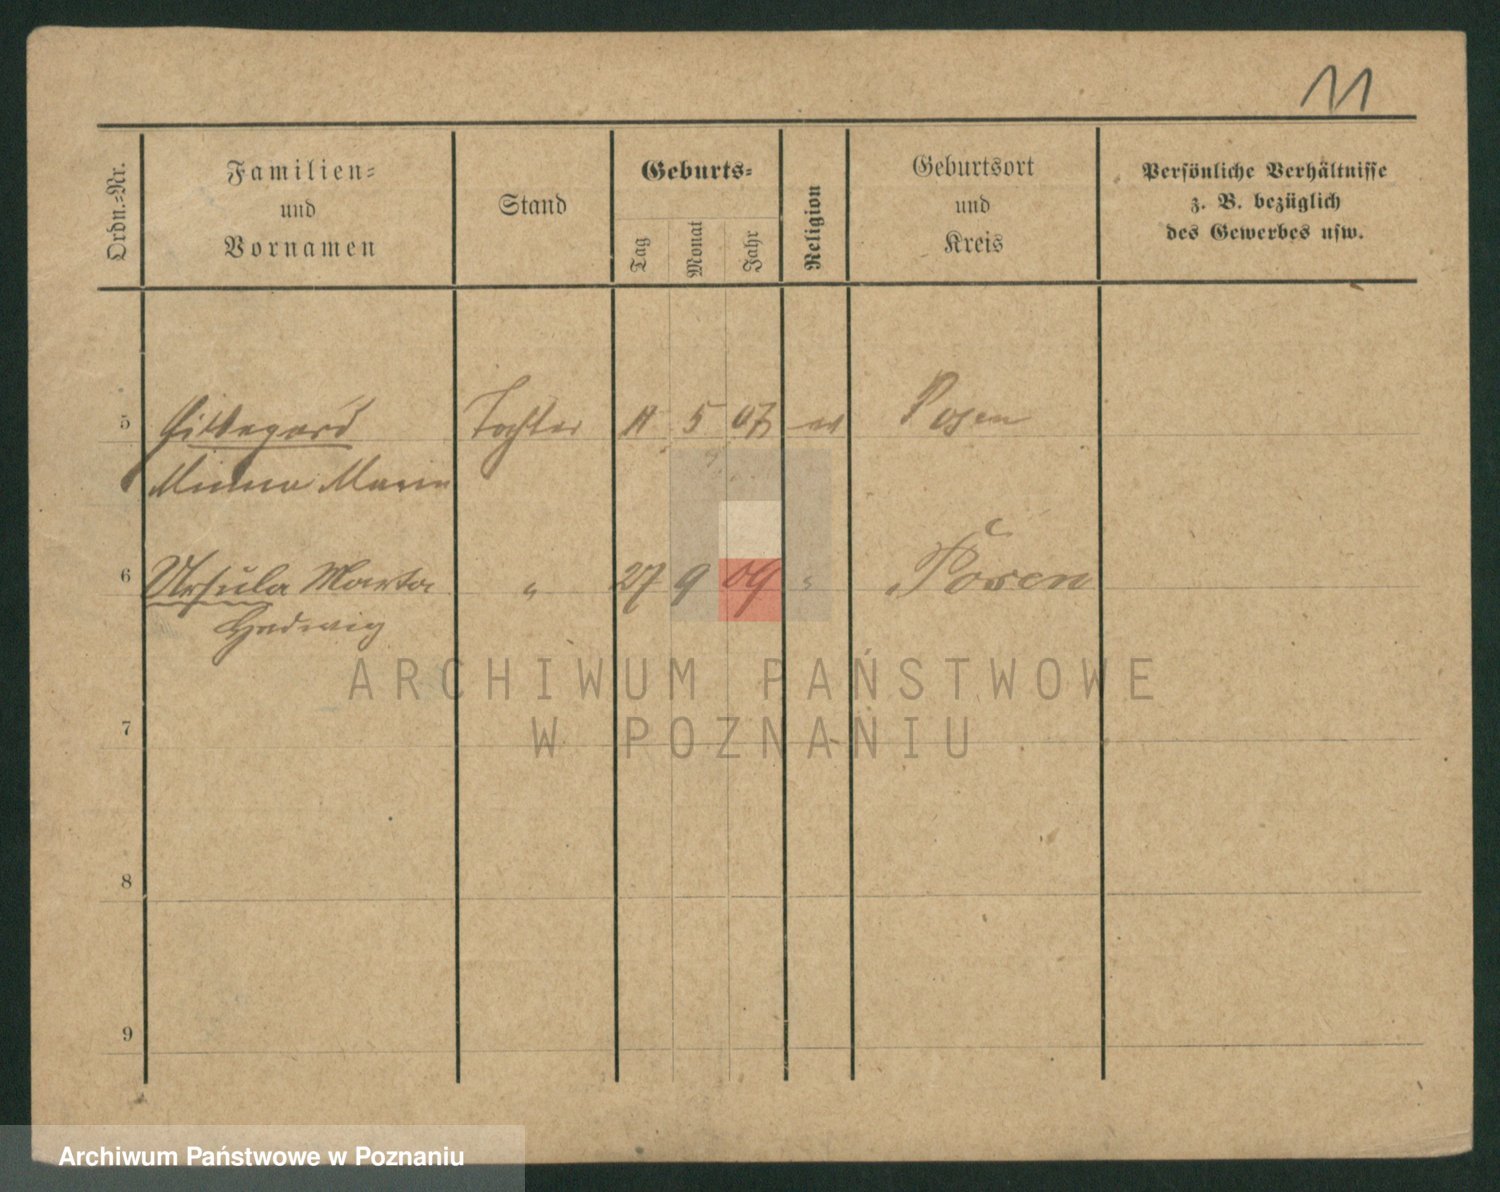 11
Ordn.-Nr.
Familien-
und
Vornamen
Stand
Geburts-
Tag
Monat
Jahr
Religion
Geburtsort
und
Kreis
Persönliche Verhältnisse
z. B. bezüglich
des Gewerbes usw.
5 Hildegard Tochter 5 07 ev Posen
Minna Marie
6 Ursula Marta " 27 9 09 " Posen
Hedwig
ARCHIWUM PAŃSTWOWE
W POZNANIU
7
8
9
Archiwum Państwowe w Poznaniu